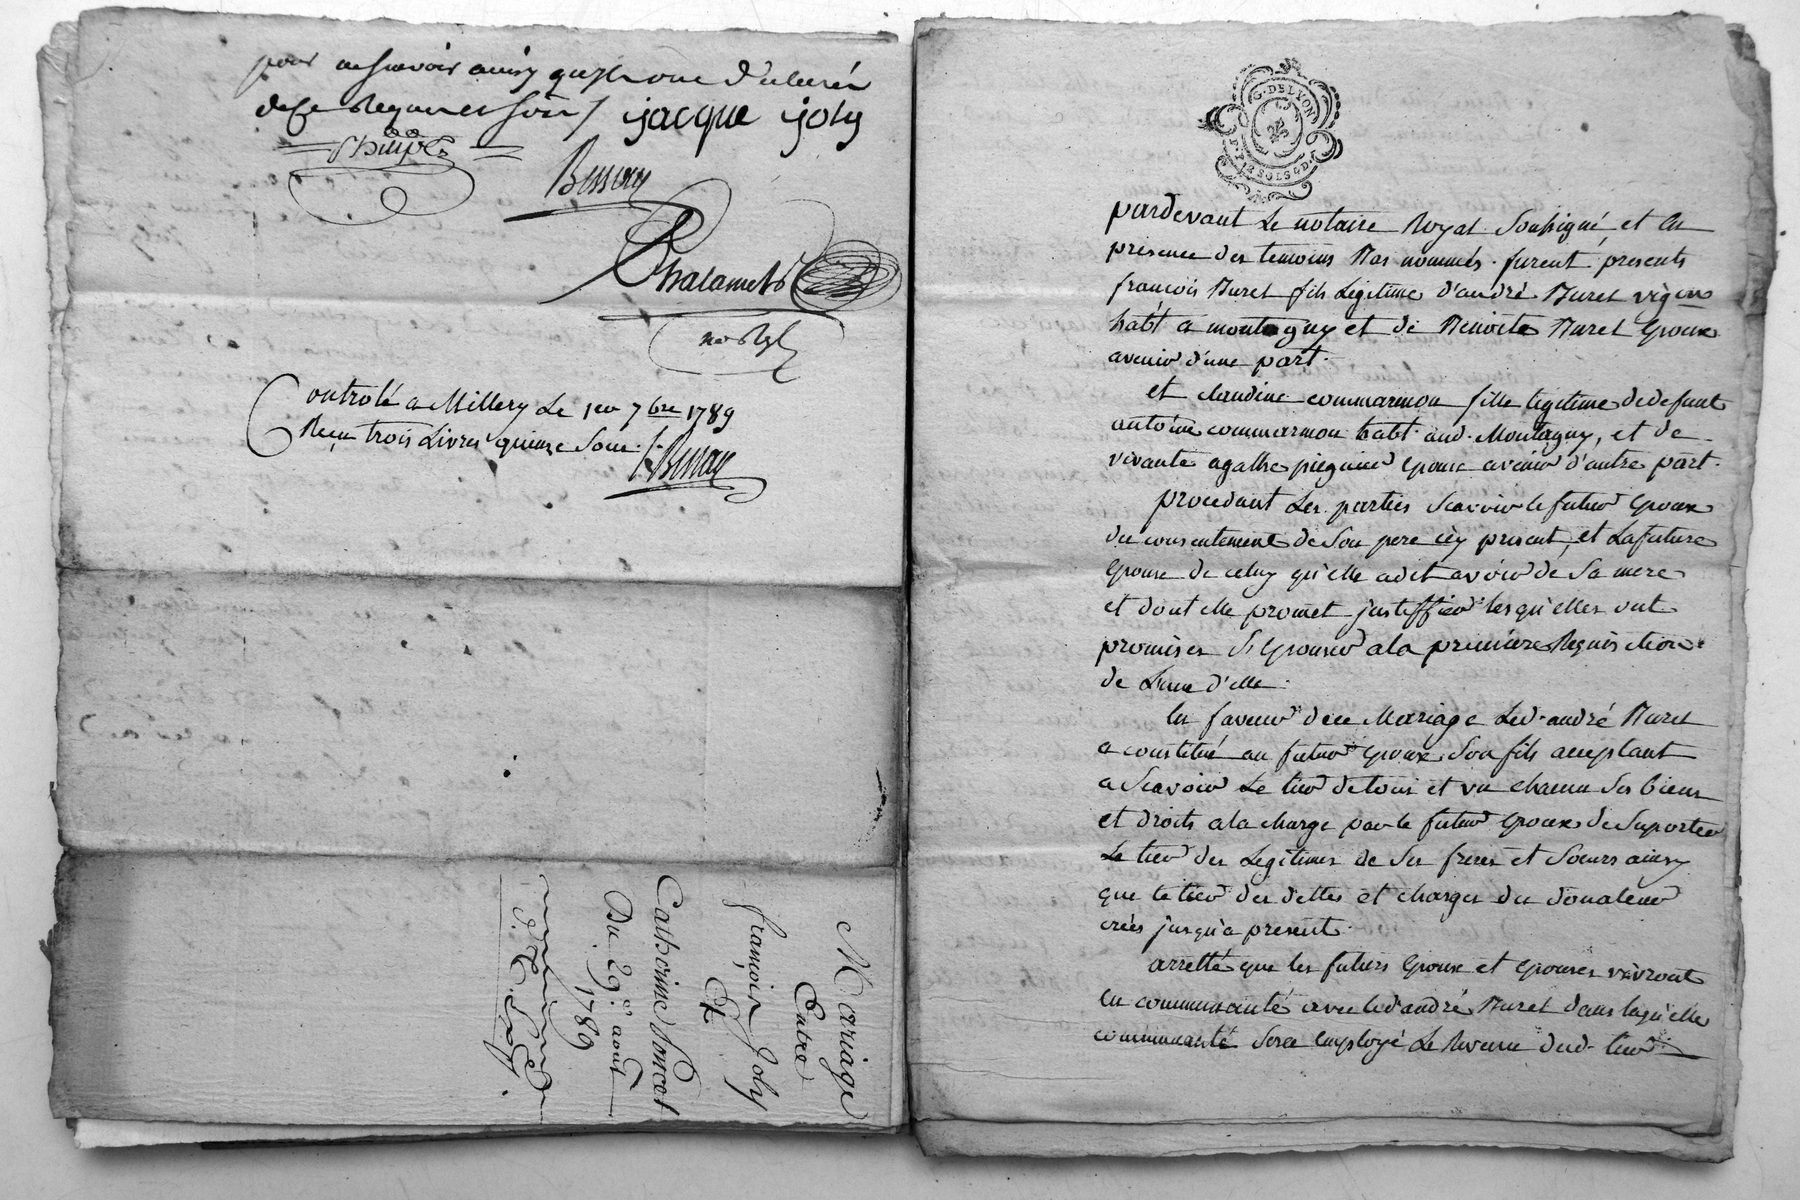 pour ne scavoir ainsy que la
de ce Requis et soms / jacque joly
Besson
Chalamel
no Ryl
Controlé a Millery Le 1er 7bre 1789
Reçu trois Livres quinze Sous
Besson
Mariage
Entre
françois Joly
Et
Catherine Poncet
Du 29e aout
1789
G. DE LYON
2 SOLS 4 D.
pardevant Le notaire Royal Soussigné et En
presence des temoins Bas nommés furent presents
françois Buret fils Legitime d'andré Buret vigon
habt a montagny et de Benoite Buret Epoux
avenir d'une part.
et claudine commarmon fille legitime de defunt
antoine commarmon habt aud. Montagny, et de
vivante agathe Epouse avenir d'autre part.
procedant Les parties Scavoir le futur Epoux
du consentement de Son pere icy present, et La future
Epouse de celuy qu'elle a dit avoir de Sa mere
et dont elle promet justiffier lesqu'elles ont
promises S'Epouser a la premiere Requisition
de L'une d'elle.
En faveur de ce Mariage Led. andré Buret
a constitué au futur Epoux Son fils acceptant
a Scavoir Le tier de tous et un chacun Ses biens
et droits a la charge par le futur Epoux de Suporter
Le tier des Legitimes de Ses freres et Soeurs ainsy
que le tier des dettes et charges du donateur
créés jusqu'a present.
arretté que les futurs Epoux et Epouses vivront
En communauté avec led. andré Buret dans laqu'elle
communauté Sera Employé Le Revenu dud. tier